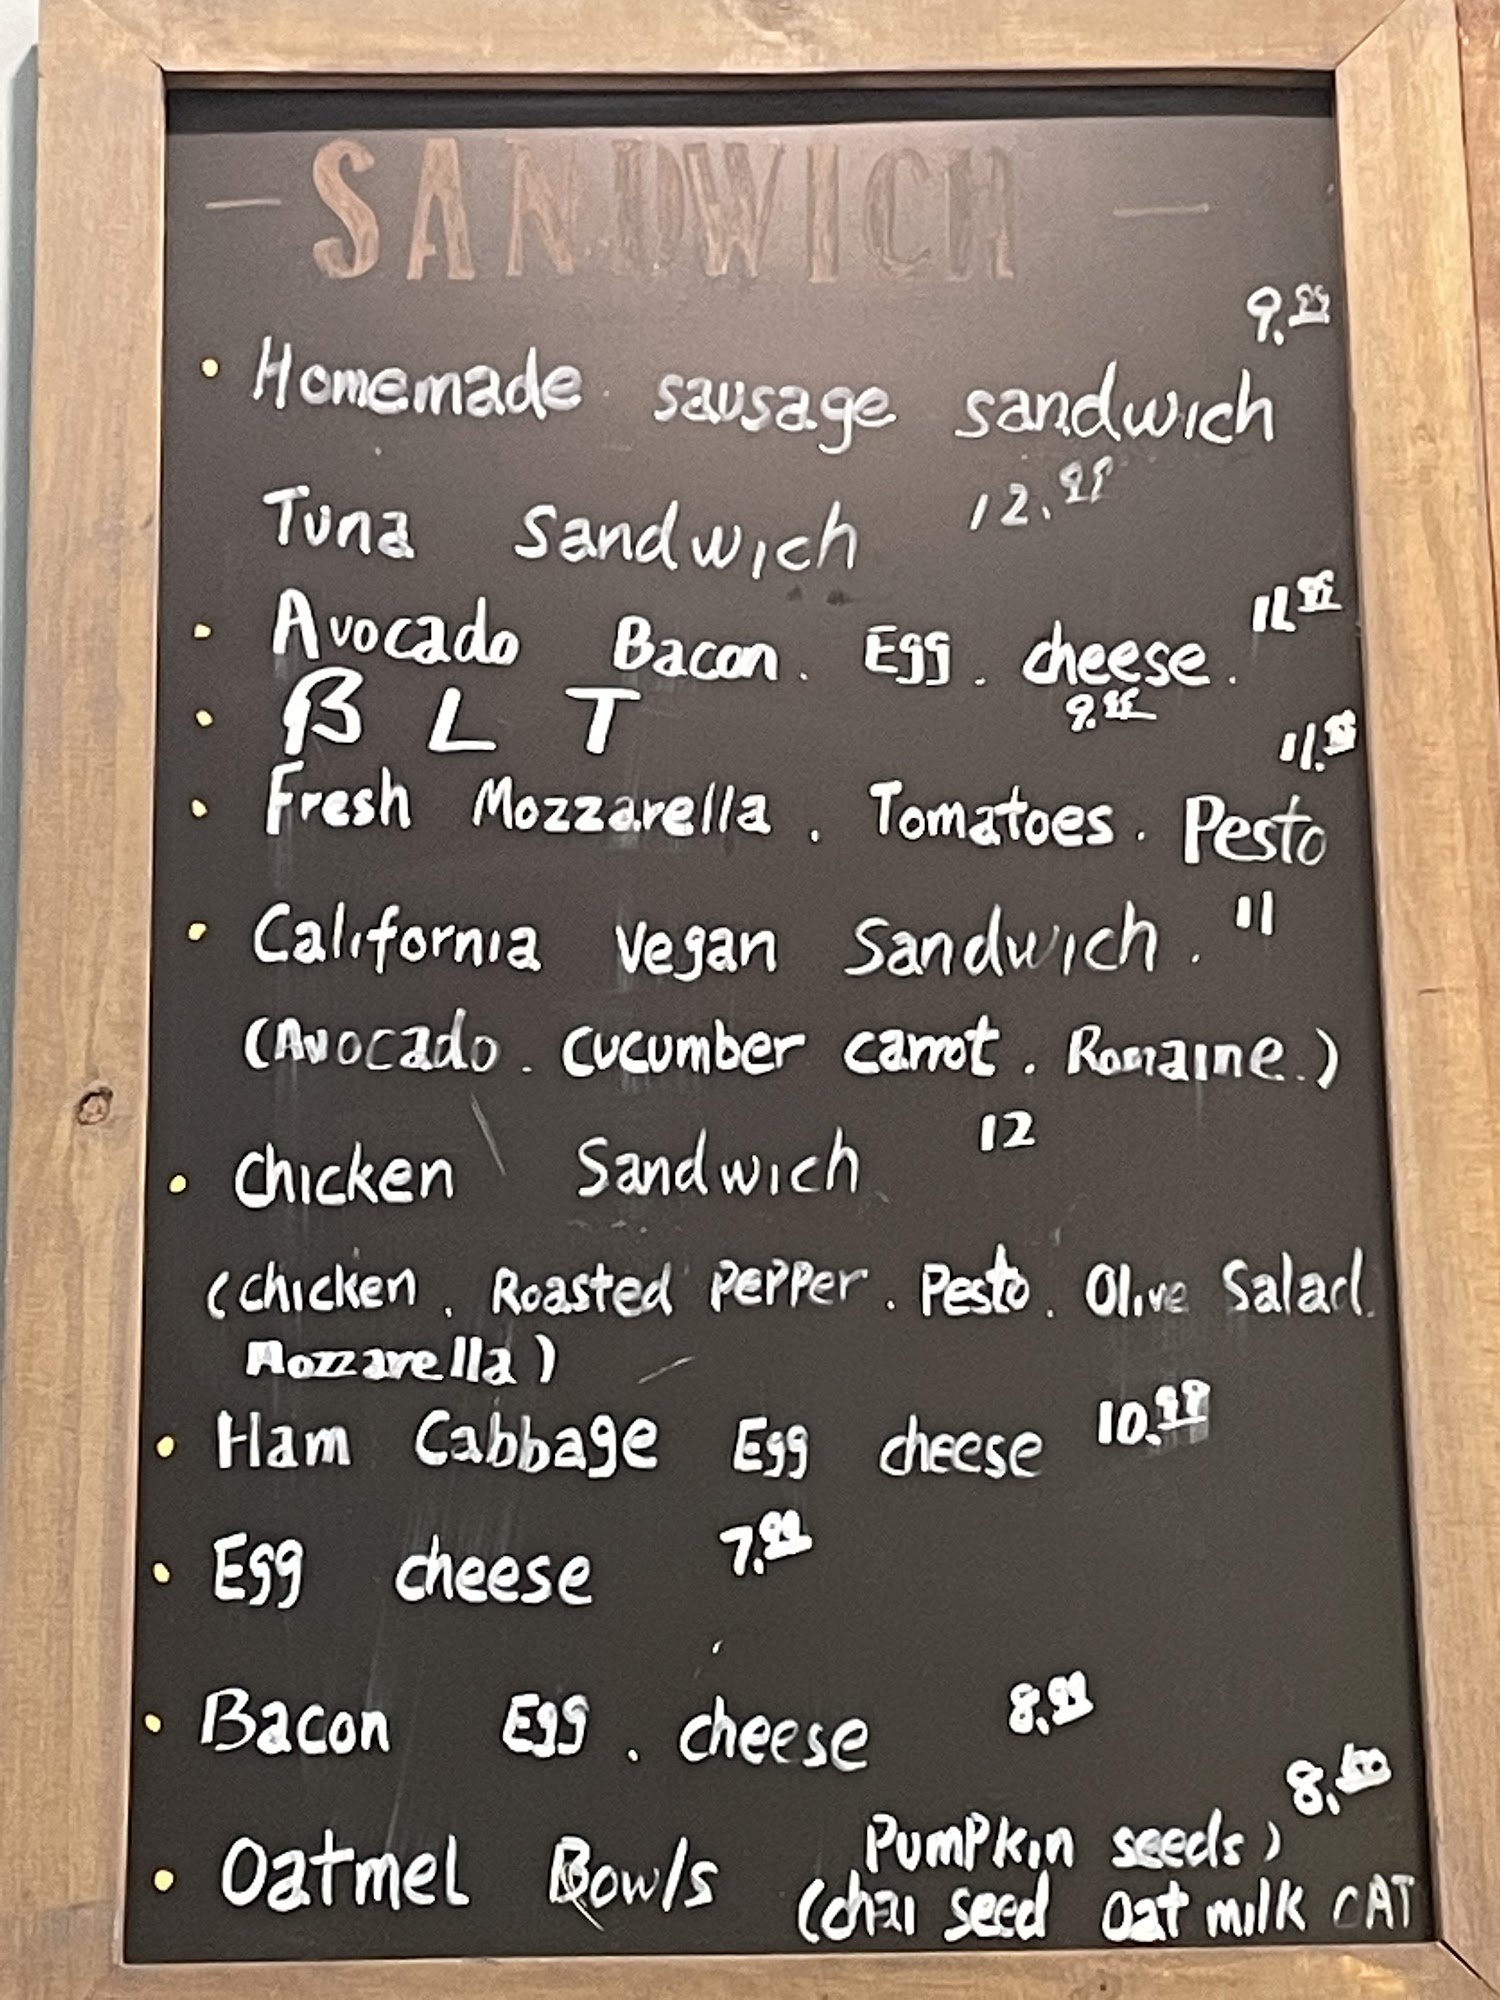 - SANDWICH -
9.99
• Homemade sausage sandwich
Tuna Sandwich 12.99
• Avocado Bacon. Egg. cheese. 11.99
• BLT 9.99
11.99
• Fresh Mozzarella. Tomatoes. Pesto
• California Vegan Sandwich. 11
(Avocado. cucumber carrot. Romaine.)
• Chicken Sandwich 12
(chicken. Roasted PePPer. Pesto. Olive Salad.
Mozzarella)
• Ham Cabbage Egg cheese 10.99
• Egg cheese 7.99
• Bacon Egg. cheese 8.99
8.
PUMPkin seeds)
• Oatmel Bowls (chai seed oat milk OAT